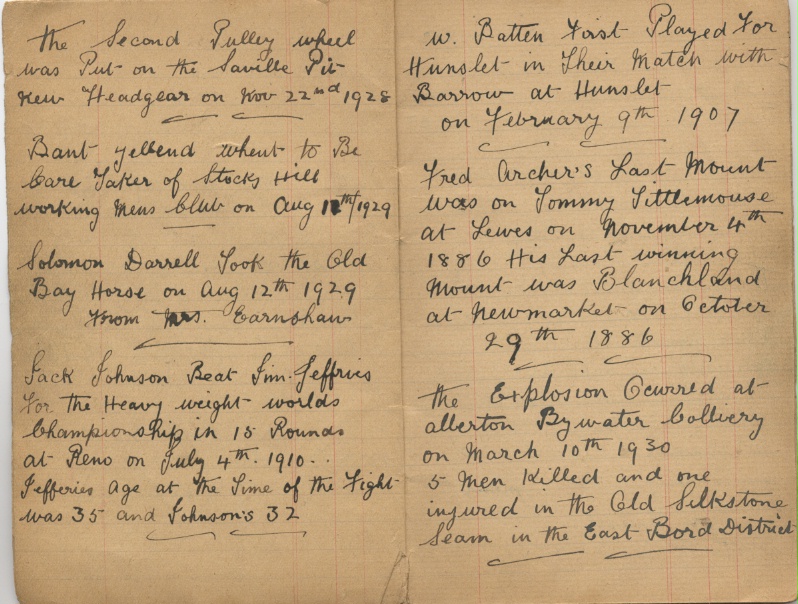 the Second Pulley wheel
was Put on the Saville Pit
New Headgear on Nov 22nd 1928
Bant yelbend whent to Be
Care Taker of Stocks Hill
working Mens Club on Aug 12th/1929
Solomon Darrell Took the Old
Bay Horse on Aug 12th 1929
From Mrs. Earnshaw
Jack Johnson Beat Jim Jeffries
For the Heavy weight worlds
Championship in 15 Rounds
at Reno on July 4th. 1910..
Jefferies Age at The Time of the Fight
was 35 and Johnson's 32
W. Batten First Played For
Hunslet in Their Match with
Barrow at Hunslet
on February 9th 1907
Fred Archer's Last Mount
was on Tommy Tittlemouse
at Lewes on November 4th
1886 His Last winning
Mount was Blanchland
at Newmarket on October
29th 1886
the Explosion Ocurred at
allerton Bywater Colliery
on March 10th 1930
5 Men Killed and one
injured in the Old Silkstone
Seam in the East Bord District